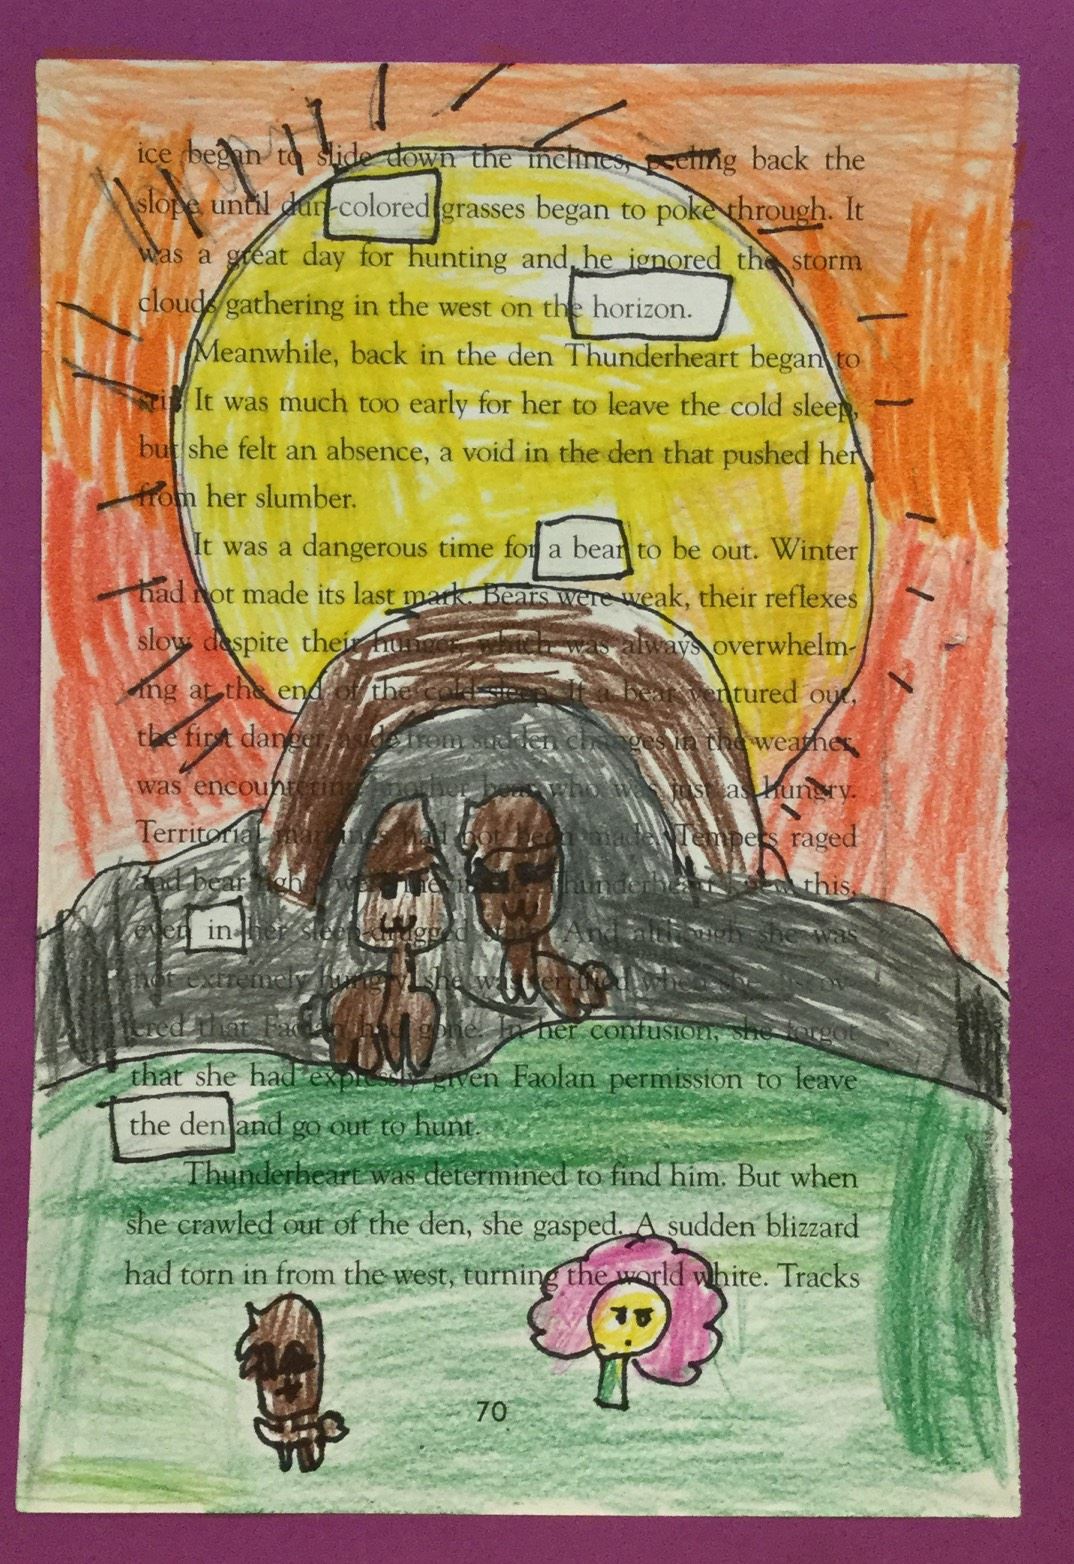 ice began to slide down the inclines, peeling back the
slope until dun-colored grasses began to poke through. It
was a great day for hunting and he ignored the storm
clouds gathering in the west on the horizon.
Meanwhile, back in the den Thunderheart began to
stir. It was much too early for her to leave the cold sleep,
but she felt an absence, a void in the den that pushed her
from her slumber.
It was a dangerous time for a bear to be out. Winter
had not made its last mark. Bears were weak, their reflexes
slow despite their hunger, which was always overwhelm-
ing at the end of the cold sleep. If a bear ventured out,
the first danger, aside from sudden changes in the weather,
was encountering another bear who was just as hungry.
Territorial markings had not been made. Tempers raged
and bear fights were inevitable. Thunderheart knew this,
even in her sleep-drugged state. And although she was
not extremely hungry, she was terrified when she discov-
ered that Faolan had gone. In her confusion, she forgot
that she had expressly given Faolan permission to leave
the den and go out to hunt.
Thunderheart was determined to find him. But when
she crawled out of the den, she gasped. A sudden blizzard
had torn in from the west, turning the world white. Tracks
70